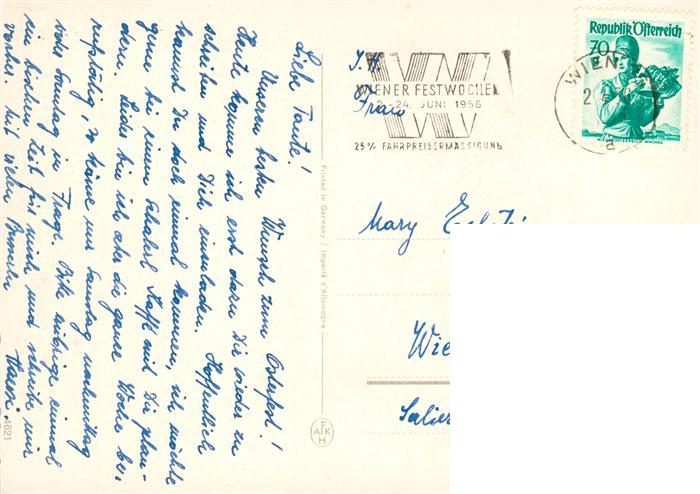 Liebe Tante!
Unseren besten Wunsch zum Osterfest!
Heute komme ich erst dazu Dir wieder zu
schreiben und Dich einzuladen. Hoffentlich
kannst Du doch einmal kommen, ich möchte
gerne bei einem Schalerl Kaffe mit Dir plau-
dern. Leider bin ich aber die ganze Woche be-
rufstätig, so käme nur Samstag nachmittag
oder Sonntag in Frage. Bitte erübrige einmal
ein bischen Zeit für mich und schreibe mir
vorher. Mit vielen Busserln
4621
Printed in Germany / Importé d'Allemagne
AFKH
I. H.
Frau
WIENER FESTWOCHEN
2.-24. JUNI 1956
25% FAHRPREISERMÄSSIGUNG
WIEN
2
a
Republik Österreich
70
Mary
Wie
Salier